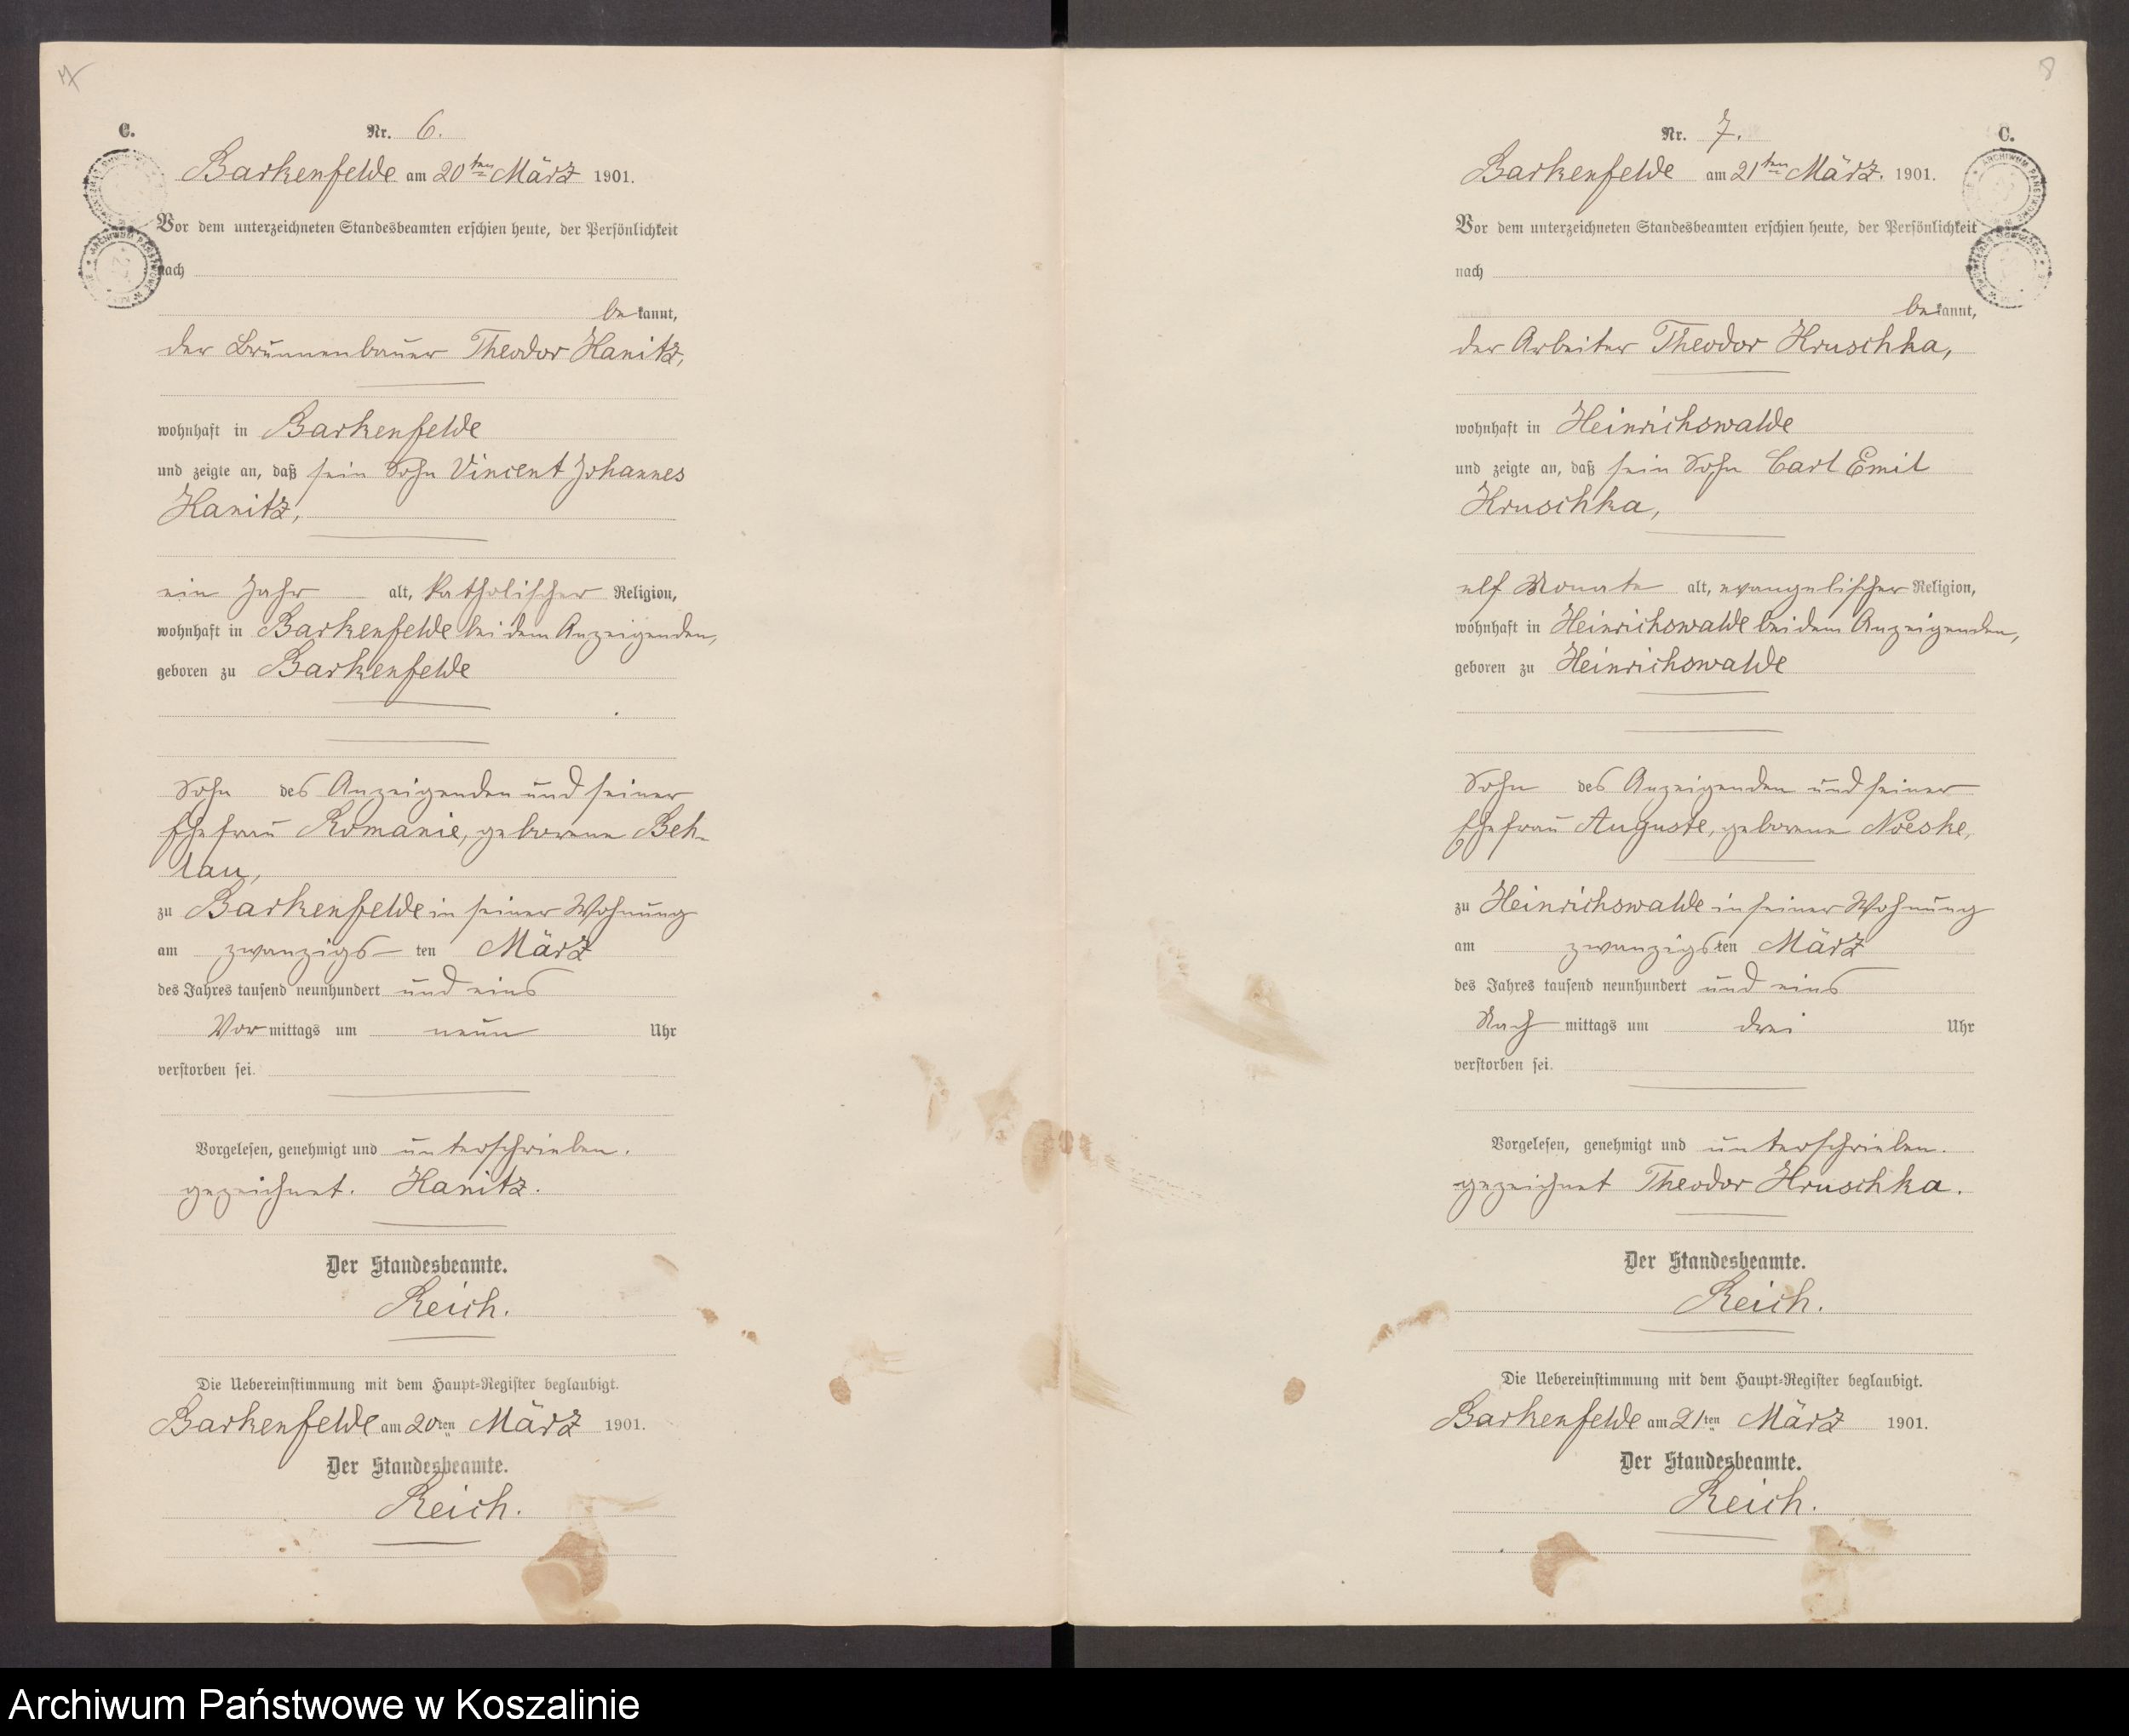 7
C.
Nr. 6.
Barkenfelde am 20ten März 1901.
Vor dem unterzeichneten Standesbeamten erschien heute, der Persönlichkeit
nach
bekannt,
der Brunnenbauer Theodor Hanitz,
wohnhaft in Barkenfelde
und zeigte an, daß sein Sohn Vincent Johannes
Hanitz,
ein Jahr alt, katholischer Religion,
wohnhaft in Barkenfelde bei dem Anzeigenden,
geboren zu Barkenfelde
Sohn des Anzeigenden und seiner
Ehefrau Romanie, geborene Beh-
lau,
zu Barkenfelde in seiner Wohnung
am zwanzigs ten März
des Jahres tausend neunhundert und eins
Vor mittags um neun Uhr
verstorben sei.
Vorgelesen, genehmigt und unterschrieben.
gezeichnet. Hanitz.
Der Standesbeamte.
Reich.
Die Uebereinstimmung mit dem Haupt-Register beglaubigt.
Barkenfelde am 20ten März 1901.
Der Standesbeamte.
Reich.
8
Nr. 7.
C.
ARCHIWUM PAŃSTWOWE
Barkenfelde am 21ten März. 1901.
Vor dem unterzeichneten Standesbeamten erschien heute, der Persönlichkeit
nach
bekannt,
der Arbeiter Theodor Hruschka,
wohnhaft in Heinrichswalde
und zeigte an, daß sein Sohn Carl Emil
Hruschka,
elf Monate alt, evangelischer Religion,
wohnhaft in Heinrichswalde bei dem Anzeigenden,
geboren zu Heinrichswalde
Sohn des Anzeigenden und seiner
Ehefrau Auguste, geborene Noeske,
zu Heinrichswalde in seiner Wohnung
am zwanzigsten März
des Jahres tausend neunhundert und eins
Nach mittags um drei Uhr
verstorben sei.
Vorgelesen, genehmigt und unterschrieben.
gezeichnet Theodor Hruschka.
Der Standesbeamte.
Reich.
Die Uebereinstimmung mit dem Haupt-Register beglaubigt.
Barkenfelde am 21ten März 1901.
Der Standesbeamte.
Reich.
Archiwum Państwowe w Koszalinie